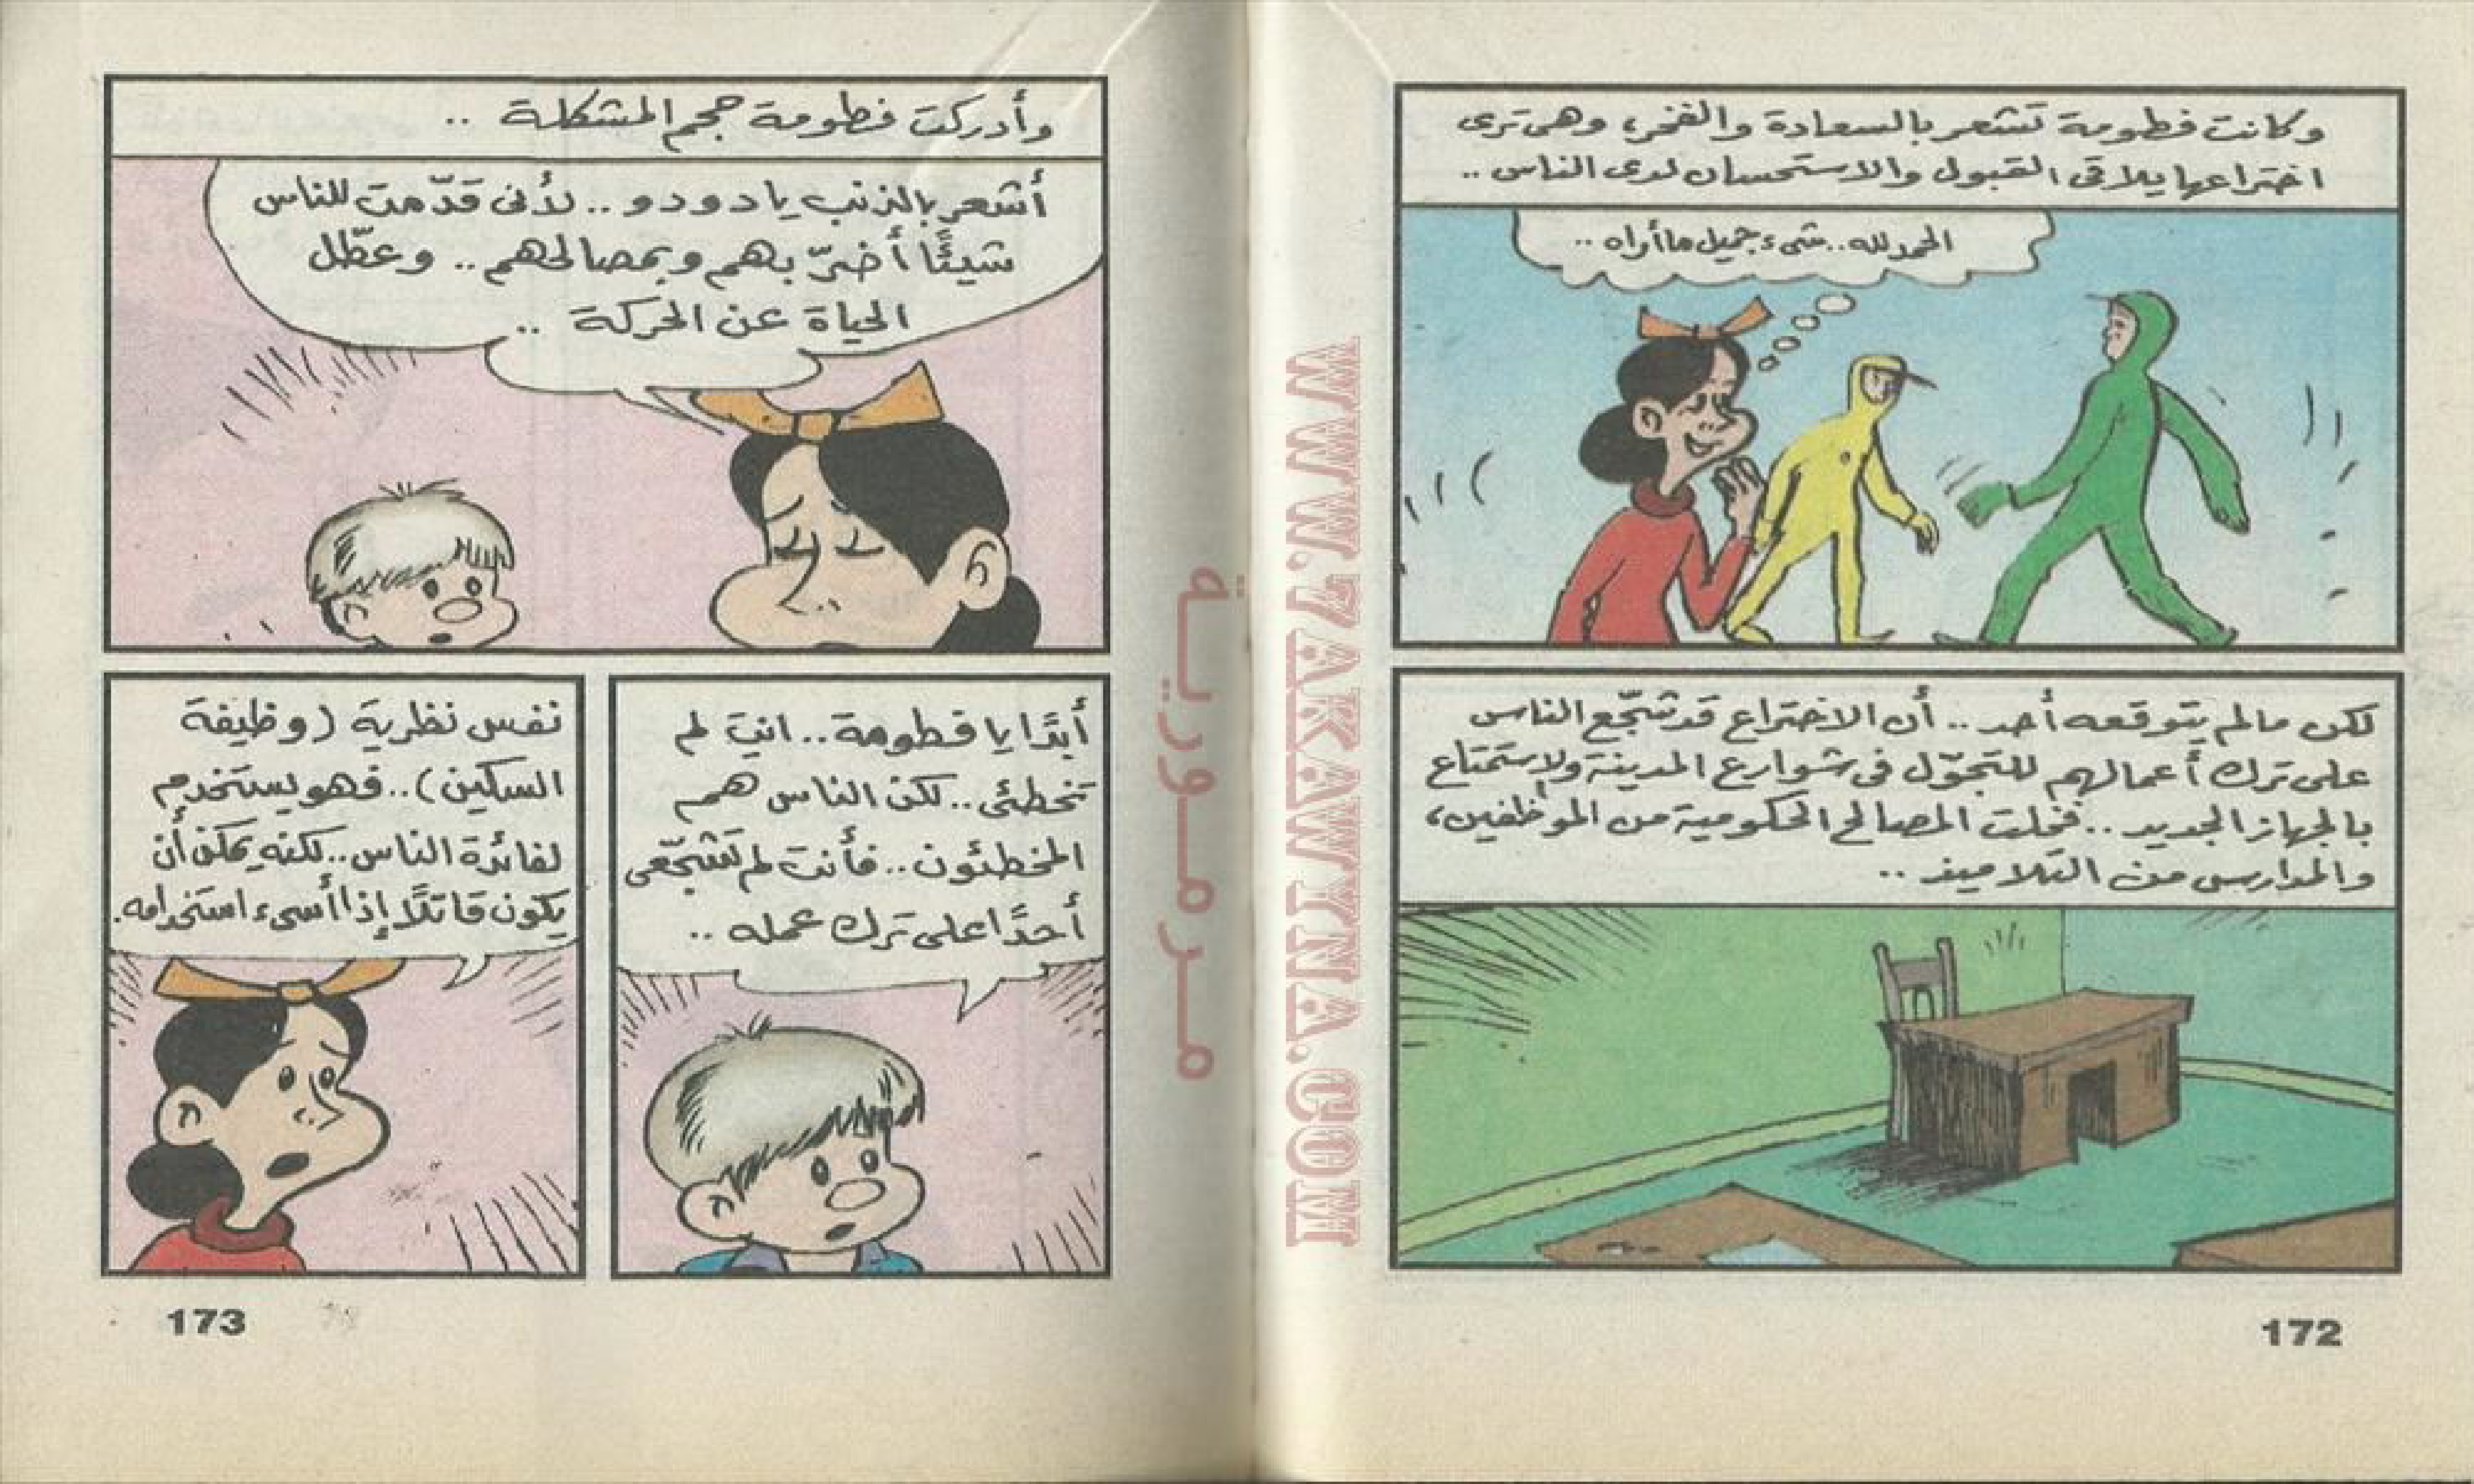 وكانت فطومة تشعر بالسعادة والفخر، وهى ترى
اختراعها يلاقى القبول والاستحسان لدى الناس ..
الحمد لله .. شىء جميل ما أراه ..
لكن ما لم يتوقعه أحد .. أن الاختراع قد شجّع الناس
على ترك أعمالهم للتجوّل فى شوارع المدينة والاستمتاع
بالجهاز الجديد .. فخلت المصالح الحكومية من الموظفين،
والمدارس من التلاميذ ..
172
وأدركت فطومة حجم المشكلة ..
أشعر بالذنب يا دودو .. لأنى قدّمت للناس
شيئًا أضرّ بهم وبمصالحهم .. وعطّل
الحياة عن الحركة ..
أبدًا يا فطومة .. انت لم
تخطئى .. لكن الناس هم
المخطئون .. فأنت لم تشجّعى
أحدًا على ترك عمله ..
نفس نظرية (وظيفة
السكين) .. فهو يستخدم
لفائدة الناس .. لكنه يمكن أن
يكون قاتلًا إذا أسىء استخدامه.
173
مرمورية
WWW.7AKAWYNA.COM